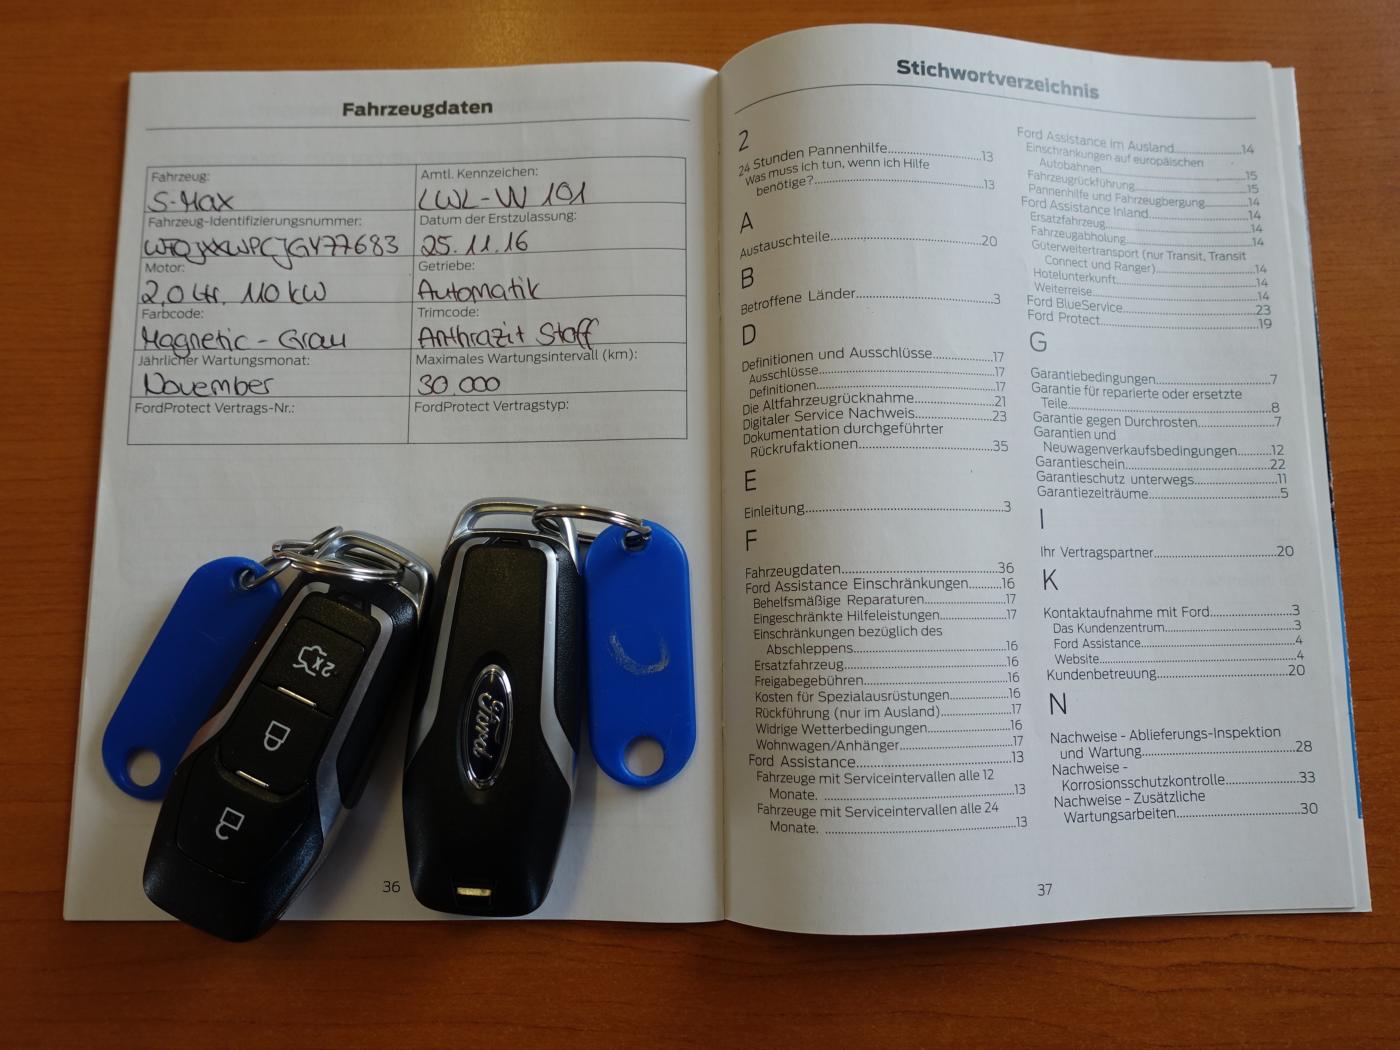 Fahrzeugdaten
Fahrzeug:
S-Max
Amtl. Kennzeichen:
LWL-W 101
Fahrzeug-Identifizierungsnummer:
Datum der Erstzulassung:
25.11.16
Motor:
2,0 Ltr. 110 kW
Getriebe:
Automatik
Farbcode:
Magnetic - Grau
Trimcode:
Anthrazit Stoff
Jährlicher Wartungsmonat:
November
Maximales Wartungsintervall (km):
30.000
FordProtect Vertrags-Nr.:
FordProtect Vertragstyp:
2x
Ford
36
Stichwortverzeichnis
2
24 Stunden Pannenhilfe...13
Was muss ich tun, wenn ich Hilfe
benötige?...13
A
Austauschteile...20
B
Betroffene Länder...3
D
Definitionen und Ausschlüsse...17
Ausschlüsse...17
Definitionen...17
Die Altfahrzeugrücknahme...21
Digitaler Service Nachweis...23
Dokumentation durchgeführter
Rückrufaktionen...35
E
Einleitung...3
F
Fahrzeugdaten...36
Ford Assistance Einschränkungen...16
Behelfsmäßige Reparaturen...17
Eingeschränkte Hilfeleistungen...17
Einschränkungen bezüglich des
Abschleppens...16
Ersatzfahrzeug...16
Freigabegebühren...16
Kosten für Spezialausrüstungen...16
Rückführung (nur im Ausland)...17
Widrige Wetterbedingungen...16
Wohnwagen/Anhänger...17
Ford Assistance...13
Fahrzeuge mit Serviceintervallen alle 12
Monate. ...13
Fahrzeuge mit Serviceintervallen alle 24
Monate. ...13
Ford Assistance im Ausland...14
Einschränkungen auf europäischen
Autobahnen...15
Fahrzeugrückführung...15
Pannenhilfe und Fahrzeugbergung...14
Ford Assistance Inland...14
Ersatzfahrzeug...14
Fahrzeugabholung...14
Güterweitertransport (nur Transit, Transit
Connect und Ranger)...14
Hotelunterkunft...14
Weiterreise...14
Ford BlueService...23
Ford Protect...19
G
Garantiebedingungen...7
Garantie für reparierte oder ersetzte
Teile...8
Garantie gegen Durchrosten...7
Garantien und
Neuwagenverkaufsbedingungen...12
Garantieschein...22
Garantieschutz unterwegs...11
Garantiezeiträume...5
I
Ihr Vertragspartner...20
K
Kontaktaufnahme mit Ford...3
Das Kundenzentrum...3
Ford Assistance...4
Website...4
Kundenbetreuung...20
N
Nachweise - Ablieferungs-Inspektion
und Wartung...28
Nachweise -
Korrosionsschutzkontrolle...33
Nachweise - Zusätzliche
Wartungsarbeiten...30
37